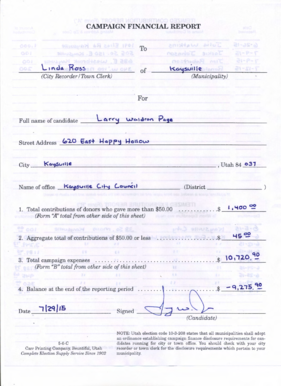 CAMPAIGN FINANCIAL REPORT
To
Linda Ross of Kaysville
(City Recorder/Town Clerk) (Municipality)
For
Full name of candidate Larry Waldron Page
Street Address 620 East Happy Hollow
City Kaysville , Utah 84 037
Name of office Kaysville City Council (District )
1. Total contributions of donors who gave more than $50.00 $ 1,400 00
(Form "A" total from other side of this sheet)
2. Aggregate total of contributions of $50.00 or less $ 45 00
3. Total campaign expenses $ 10,720.90
(Form "B" total from other side of this sheet)
4. Balance at the end of the reporting period $ -9,275.90
Date 7/29/15 Signed
(Candidate)
5-5-C
Carr Printing Company, Bountiful, Utah
Complete Election Supply Service Since 1902
NOTE: Utah election code 10-3-208 states that all municipalities shall adopt
an ordinance establishing campaign finance disclosure requirements for can-
didates running for city or town office. You should check with your city
recorder or town clerk for the disclosure requirements which pertain to your
municipality.